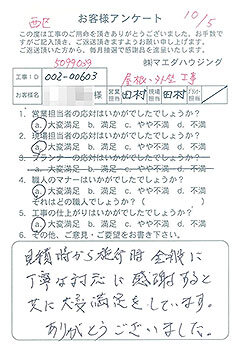 西区
10/5
お客様アンケート
この度は工事のご用命を頂きありがとうございます。お手数で
すがご記入頂き、ご返送頂きますようお願い申し上げます。
ご返送頂いた方には、毎月抽選で感謝品を進呈いたします。
5099039
㈱マエダハウジング
工事ID 002-00603
屋根・外壁 工事
お客様名 様 営業担当 田村 現場担当 田村
1. 営業担当者の対応はいかがでしたでしょうか?
a. 大変満足 b. 満足 c. やや不満 d. 不満
2. 現場担当者の対応はいかがでしたでしょうか?
a. 大変満足 b. 満足 c. やや不満 d. 不満
3. プランナーの対応はいかがでしたでしょうか?
a. 大変満足 b. 満足 c. やや不満 d. 不満
4. 職人のマナーはいかがでしたでしょうか?
a. 大変満足 b. 満足 c. やや不満 d. 不満
それはどの職人でしょうか? ( )
5. 工事の仕上がりはいかがでしたでしょうか?
a. 大変満足 b. 満足 c. やや不満 d. 不満
6. その他、ご意見・ご要望をお書き下さい。
見積時から施行時 全般に
丁寧な対応に感謝すると
共に大変満足をしています。
ありがとうございました。